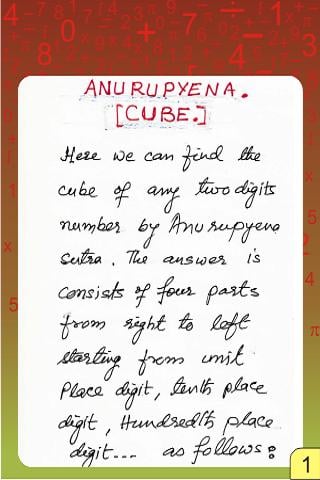 ANURUPYENA.
[CUBE.]
Here we can find the
cube of any two digits
number by Anurupyena
sutra. The answer is
consists of four parts
from right to left
starting from unit
Place digit, tenth place
digit, Hundredth place
digit--- as follows:
1